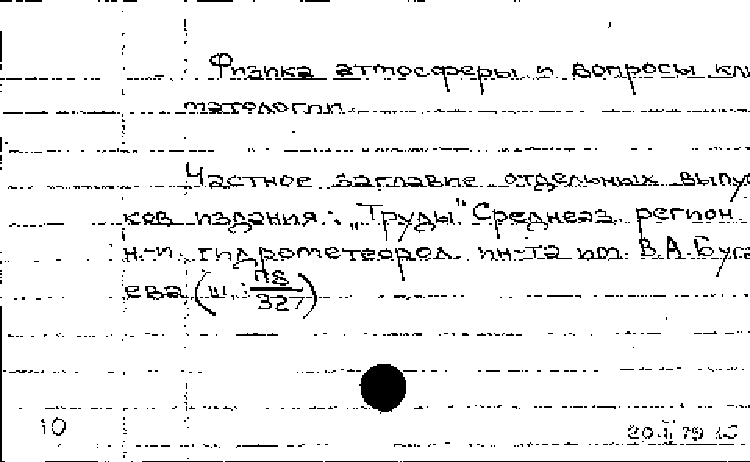 Физика атмосферы и вопросы кли
матологии.
Частное заглавие отдельных выпус
ков издания: „Труды" Среднеаз. регион.
н.-и. гидрометеорол. ин-та им. В.А. Буга
ева (ш. П8/327)
10 20 II 79